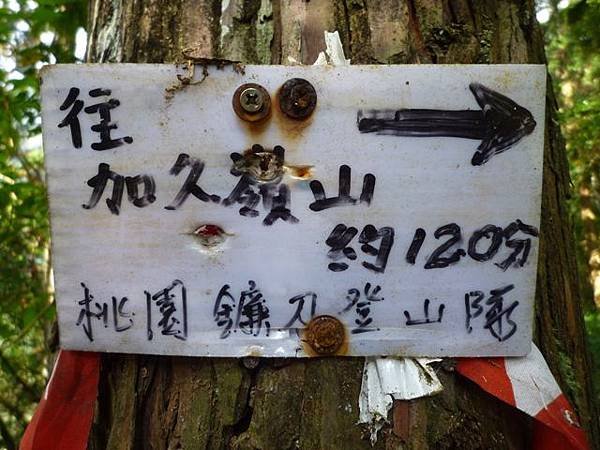 往
加久嶺山
約120分
桃園鐮刀登山隊